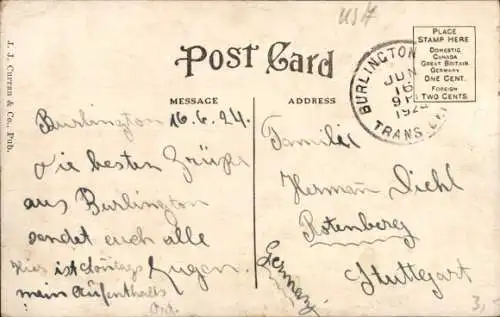 USA
POST CARD
PLACE
STAMP HERE
DOMESTIC
CANADA
GREAT BRITAIN
GERMANY
ONE CENT.
FOREIGN
TWO CENTS.
BURLINGTON
JUN
16
TRANS.
J. J. Curren & Co., Pub.
MESSAGE
ADDRESS
Burlington 16.6.24.
Die besten Grüße
aus Burlington
sendet euch alle
Hier ist Eugen.
mein Aufenthalts
Ort.
Familie
Herman Diehl
Rotenberg
Stuttgart
Germany
3,